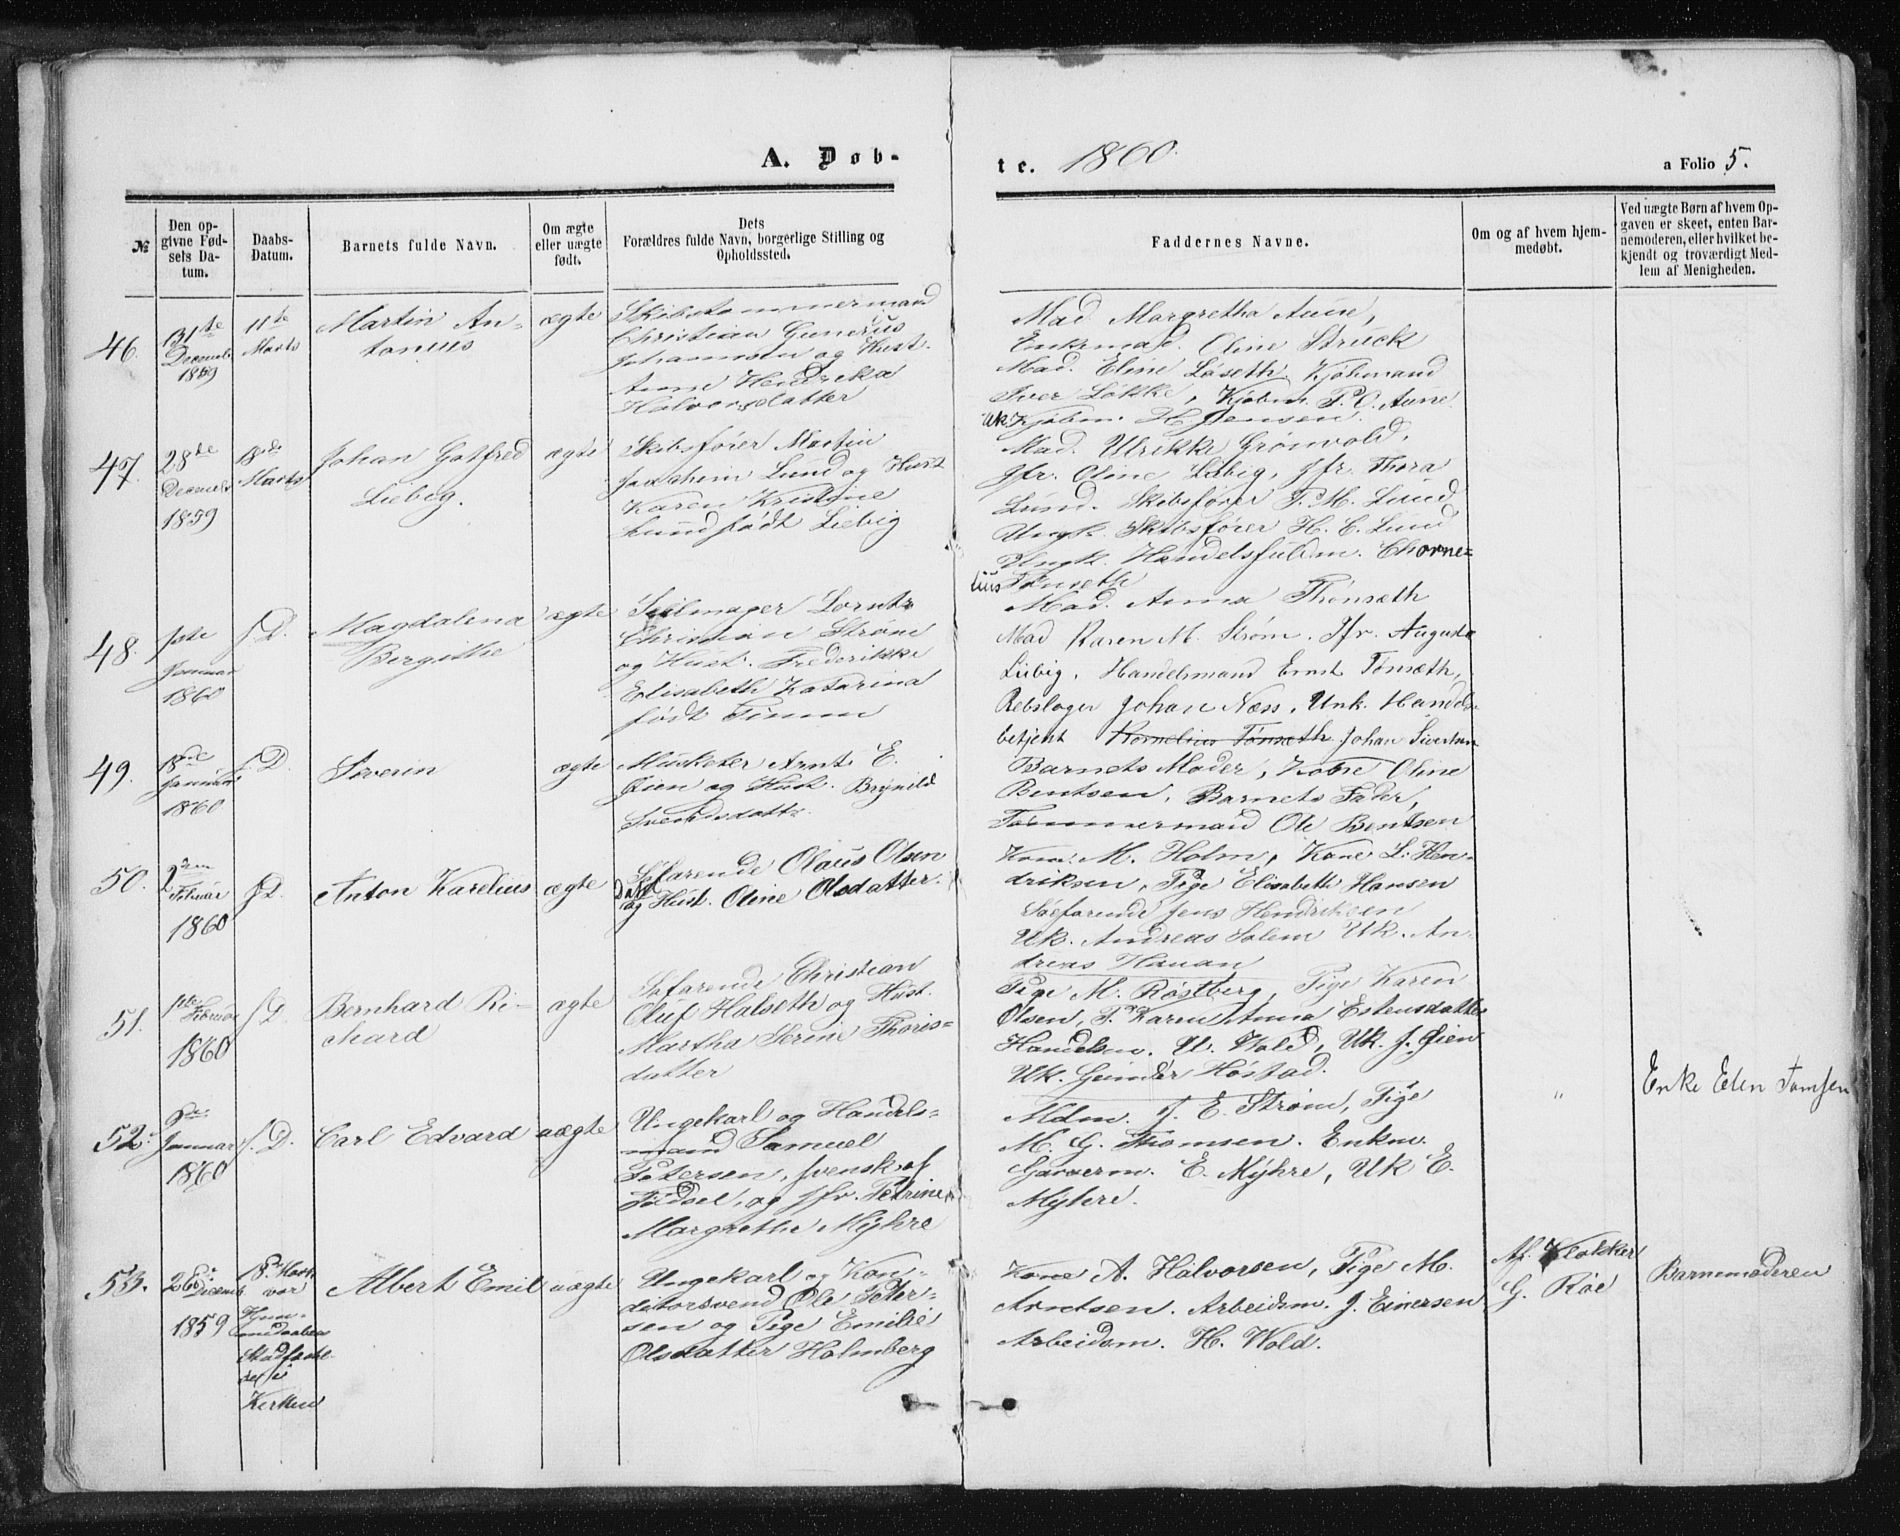 A. Døb-
te. 1860.
a Folio 5.
№
Den opgivne Fødsels Datum.
Daabs-Datum.
Barnets fulde Navn.
Om ægte eller uægte født.
Dets Forældres fulde Navn, borgerlige Stilling og Opholdssted.
Faddernes Navne.
Om og af hvem hjemmedøbt.
Ved uægte Børn af hvem Opgaven er skeet, enten Barnemoderen, eller hvilket bekjendt og troværdigt Medlem af Menigheden.
46.
31te
Decemb
1859
11te
Marts
Martin An-
tonius
ægte
Skibstømmermand
Christian Gunerius
Johannsen og Hust.
Anne Hendreka
Halvorsdatter
Mad Margretha Aune,
Enkemad. Oline Struck
Mad. Eline Løseth, Kjøbmand
Iver Løkke, Kjøbm. P. O. Aune
Uk. Kjøbm. H. Jensen.
47.
28de
Decemb
1859
18de
Marts
Johan Gotfred
Liebig.
ægte
Skibsfører Martin
Joachim Lund og Hust
Karen Kristine
Lund født Liebig
Mad. Ulrikke Grønvold,
Jfr. Oline Liebig, Jfr. Thora
Lund. Skibsfører P. M. Lund
Ungk. Skibsfører H. C. Lund
Ungk. Handelsfuldm. Chorne=
lius Tønseth
48.
1ste
Januar
1860
s. D.
Magdalena
Bergithe
ægte
Seilmager Lorntz
Christian Strøm
og Hust. Frederikke
Elisabeth Katarina
født Timm
Mad. Anna Thønsæth
Mad Karen M. Strøm. Jfr. Augusta
Liebig, Handelsmand Ernst Tønsæth,
Rebslager Johan Næss, Unk. Handels-
betjent Kornelius Tønseth Johan Sivertsen
49.
18de
Januar
1860
s. D.
Severin
ægte
Musketer Arnt E.
Øien og Hust. Brynild
Svendsdattr.
Barnets Moder, Kone Oline
Bentsen, Barnets Fader,
Tømmermand Ole Bentsen
50.
2den
Februar
1860
s. D.
Anton Karelius
ægte
Søfarende Olaus Olsen
og Hust. Oline Olsdatter.
Kone M. Holm, Kone L. Hen-
driksen, Pige Elisabeth Hansen
Søefarende Jens Hendriksen
Uk. Andreas Solem Uk. An-
dreas Hauan
51.
1ste Februar
1860
s. D.
Bernhard Ri-
chard
ægte
Søfarende Christian
Oluf Halseth og Hust.
Martha Serine Thoris=
datter
Pige M. Røstberg, Pige Karen
Olsen, P. Karen Anna Estensdatter
Handelsm. U. Wold, Uk. J. Øien
Uk. Gunder Høstad.
52.
Januar
1860
s. D.
Carl Edvard
uægte
Ungekarl og Handels=
mand Samuel
Petersen, svensk af
Fødsel, og Jfr. Petrine
Margrethe Mÿhre
Mdm. J. E. Strøm, Pige
M. G. Thomsen. Enkm.
Garverm. E. Mÿhre, Uk E.
Mÿhre.
"
Enke Elen Tomsen
53.
26de
Decemb
1859
18de Marts
var
Hjem-
medaaben
Stadfæstet
i
Kirken
Albert Emil
uægte
Ungekarl og Kon-
ditorsvend Ole Peter-
sen og Pige Emilie
Olsdatter Holmberg
Kone A. Halvorsen, Pige M.
Arntsen. Arbeidsm. J. Einersen
Arbeidsm. H. Wold.
Af Klokker
G. Røe
Barnemoderen